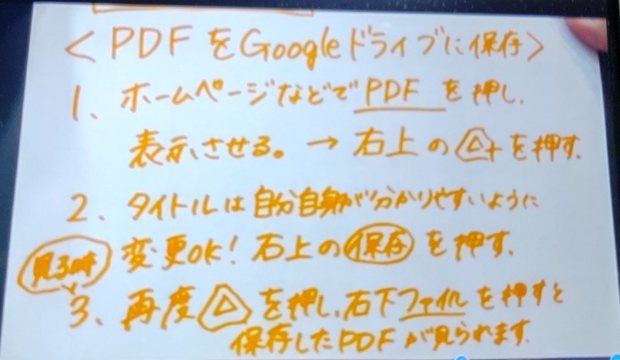 <PDFをGoogleドライブに保存>
1、ホームページなどでPDFを押し、
表示させる。→右上の△+を押す。
2、タイトルは自分自身が分かりやすいように
変更OK!右上の保存を押す。
見る時
3、再度△を押し、右下ファイルを押すと
保存したPDFが見られます。